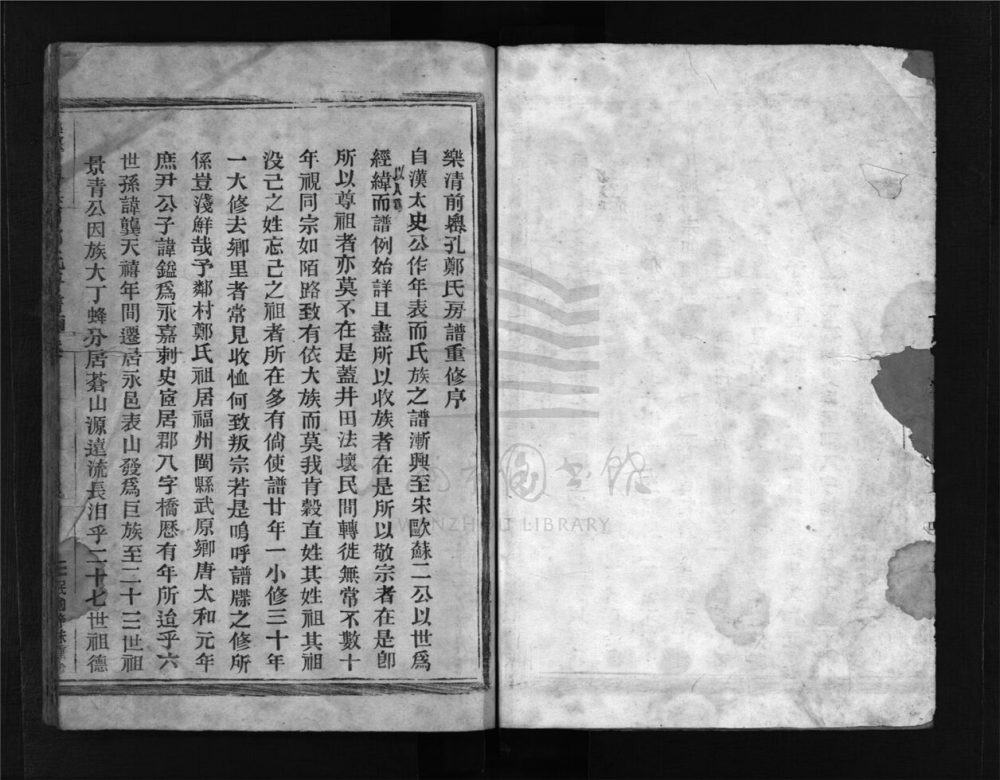 樂清前㟁孔鄭氏房譜重修序
自漢太史公作年表而氏族之譜漸興至宋歐蘇二公以世爲
經緯而譜例始詳且盡所以收族者在是所以敬宗者在是卽
所以尊祖者亦莫不在是蓋井田法壞民間轉徙無常不數十
年視同宗如陌路致有依大族而莫我肯穀直姓其姓祖其祖
没己之姓忘己之祖者所在多有倘使譜廿年一小修三十年
一大修去鄉里者常見收恤何致叛宗若是嗚呼譜牒之修所
係豈淺鮮哉予鄰村鄭氏祖居福州閩縣武原鄉唐太和元年
庶尹公子諱鎰爲永嘉刺史宦居郡八字橋歷有年所迨乎六
世孫諱龔天禧年間遷居永邑表山發爲巨族至二十三世祖
景青公因族大丁蜂分居蒼山源遠流長洎乎二十七世祖德
WENZHOU LIBRARY